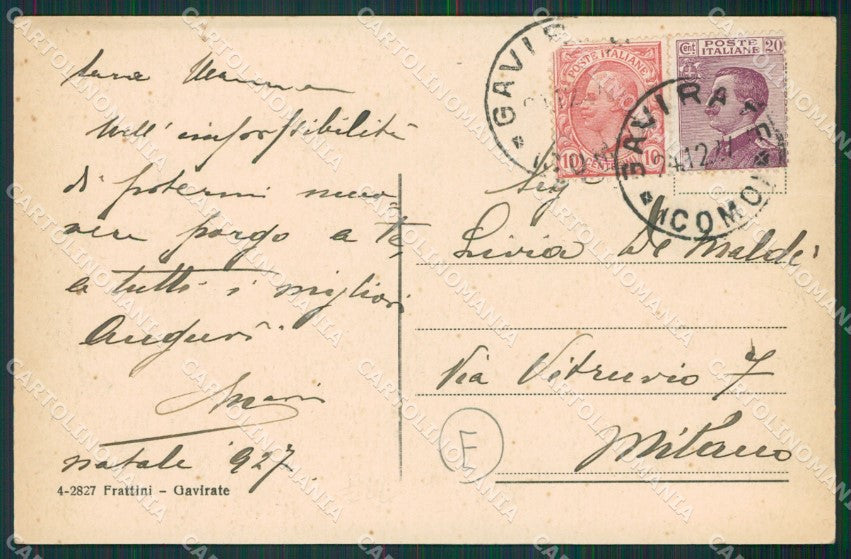 Cara Mamma
Nell'impossibilità
di potermi muo-
vere porgo a te,
e tutti i migliori
Auguri.
natale 927
4-2827 Frattini - Gavirate
GAVIRATE
POSTE ITALIANE
10 10
Cent POSTE ITALIANE 20
GAVIRATE
24.12.27
(COMO)
Sig
Livia De Maldè
Via Vitruvio 7
Milano
E
CARTOLINOMANIA